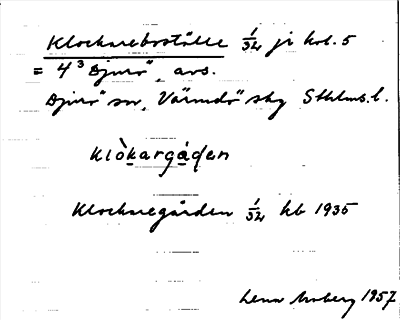 Klockareboställe 1/32 jr kol. 5
= 4³ Djurö, avs.
Djurö sn, Värmdö skg Sthlms. l.
klòkargáḍen
Klockaregården 1/32 kb 1935
Lena Moberg 1957